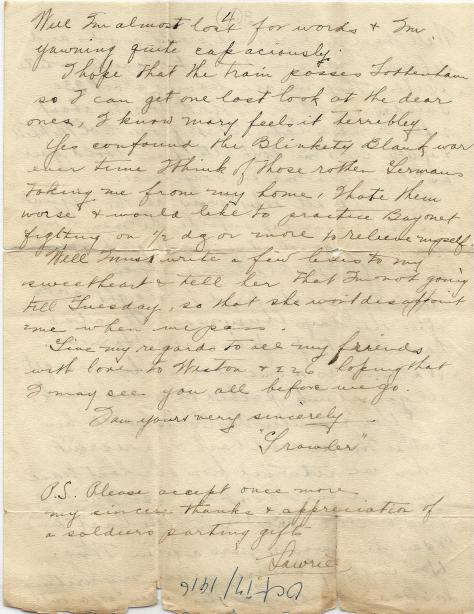 (4)
Well I'm almost lost for words & I'm
yawning quite capaciously.
I hope that the train passes Tottenham
so I can get one last look at the dear
ones, I know mary feels it terribley.
Yes confound the Blinkety Blank war
ever time I think of those rotten Germans
taking me from my home, I hate them
worse & would like to practice Bayonet
fighting on 1/2 dz or more to relieve myself.
Well I must write a few lines to my
sweetheart & tell her that I'm not going
till Tuesday, so that she wont disapoint
me when we pass.
Give my regards to all my friends
with love to Weston & I26 hoping that
I may see you all before we go.
I am yours very sincerely
"Trowler"
P.S. Please accept once more
my sincere thanks & appreciation of
a soldiers parting gift
Lawrie
Oct 17/1916